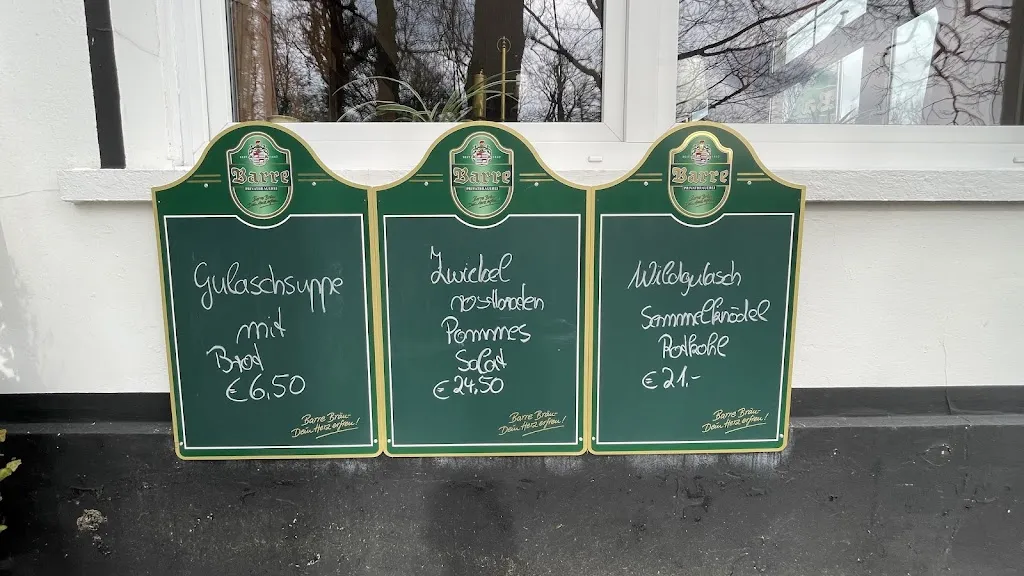 Barre
PRIVATBRAUEREI
Gulaschsuppe
mit
Brot
€ 6,50
Barre Bräu-
Dein Herz erfreu!
Barre
PRIVATBRAUEREI
Zwiebel
rostbraten
Pommes
Salat
€ 24,50
Barre Bräu-
Dein Herz erfreu!
Barre
PRIVATBRAUEREI
Wildgulasch
Semmelknödel
Rotkohl
€ 21,-
Barre Bräu-
Dein Herz erfreu!